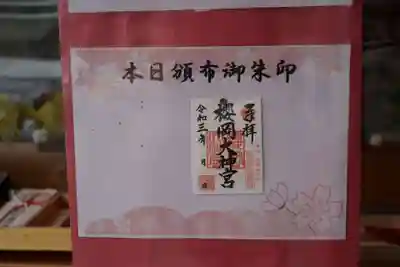 本日頒布御朱印
奉拝
櫻岡大神宮
令和三年 月 日